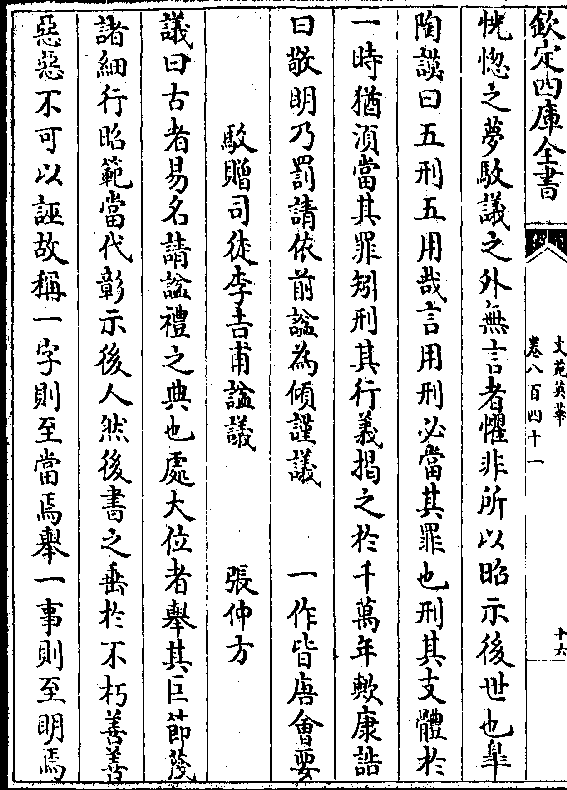 欽定四庫全書
文苑英華
卷八百四十一
十六
恍惚之夢駮議之外無言者懼非所以昭示後世也臯
陶謨曰五刑五用哉言用刑必當其罪也刑其支體於
一時猶湏當其罪矧刑其行義揭之於千萬年歟康誥
曰敬明乃罰請依前諡為傾謹議 一作皆唐會要
駮贈司徒李吉甫諡議 張仲方
議曰古者易名請諡禮之典也處大位者舉其巨節蔑
諸細行昭範當代彰示後人然後書之垂於不朽善善
惡惡不可以誣故稱一字則至當焉舉一事則至明焉